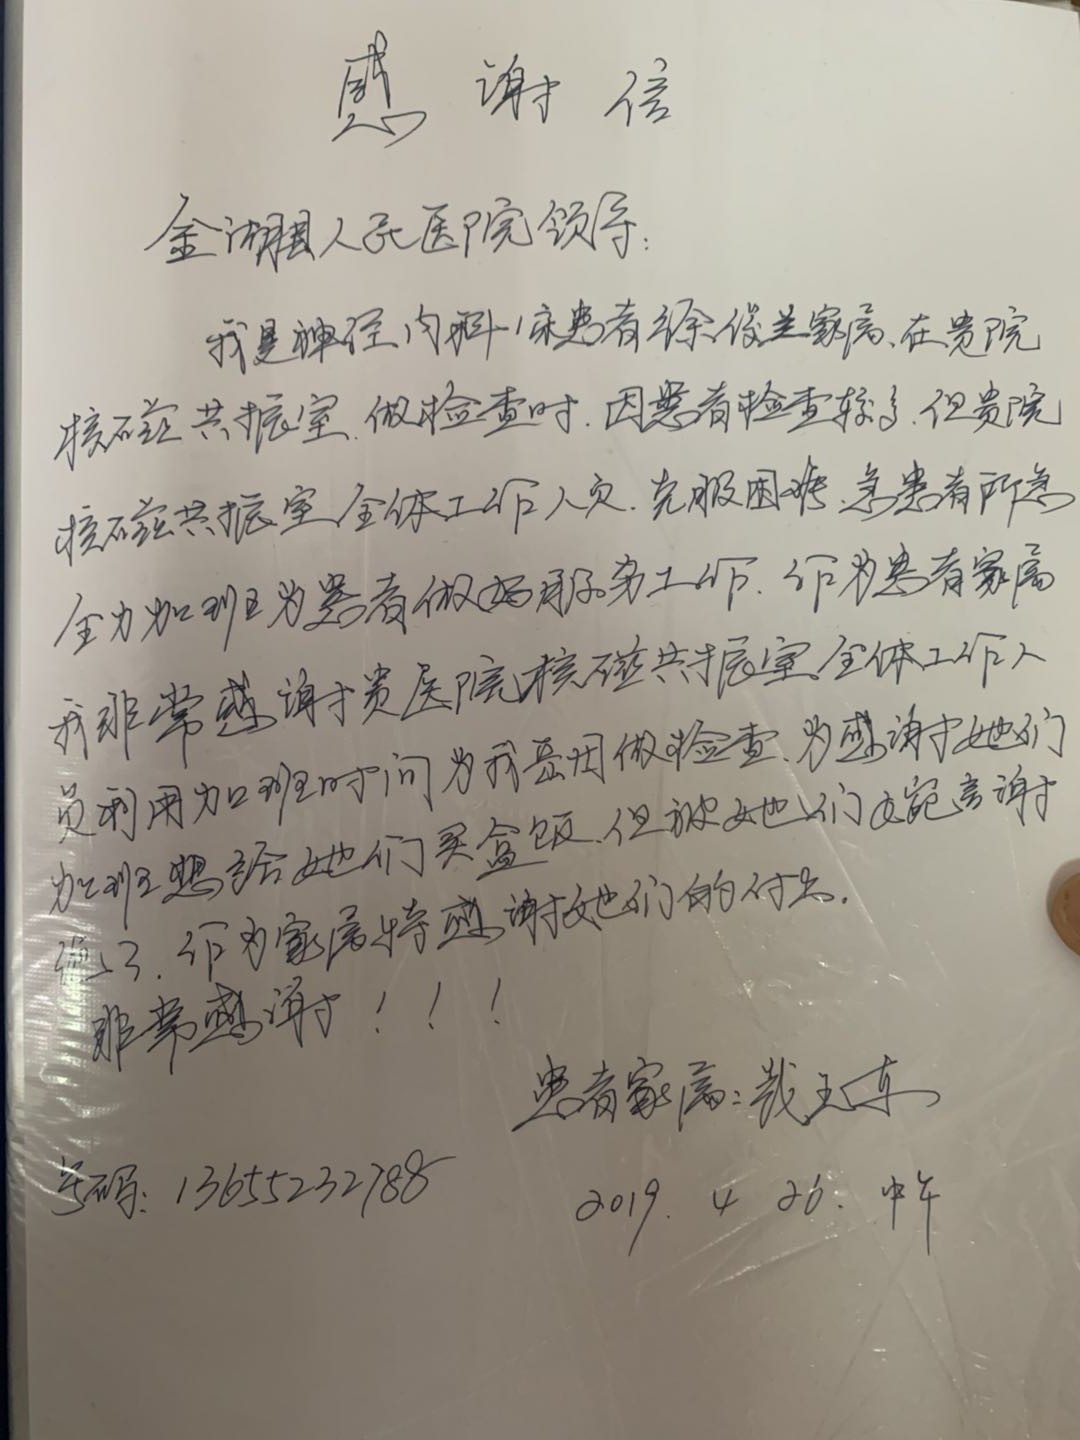 感谢信
金湖县人民医院领导:
我是神经内科1床患者徐俊兰家属、在贵院
核磁共振室、做检查时、因患者检查较多、但贵院
核磁共振室全体工作人员、克服困难、急患者所急
全力加班为患者做好服务工作、作为患者家属
我非常感谢贵医院核磁共振室全体工作人
员利用加班时间为我岳母做检查、为感谢她们
加班想给她们买盒饭、但被她们婉言谢
绝了、作为家属特感谢她们的付出.
非常感谢!!!
患者家属:
号码:13655232788
2019. 4 26. 中午